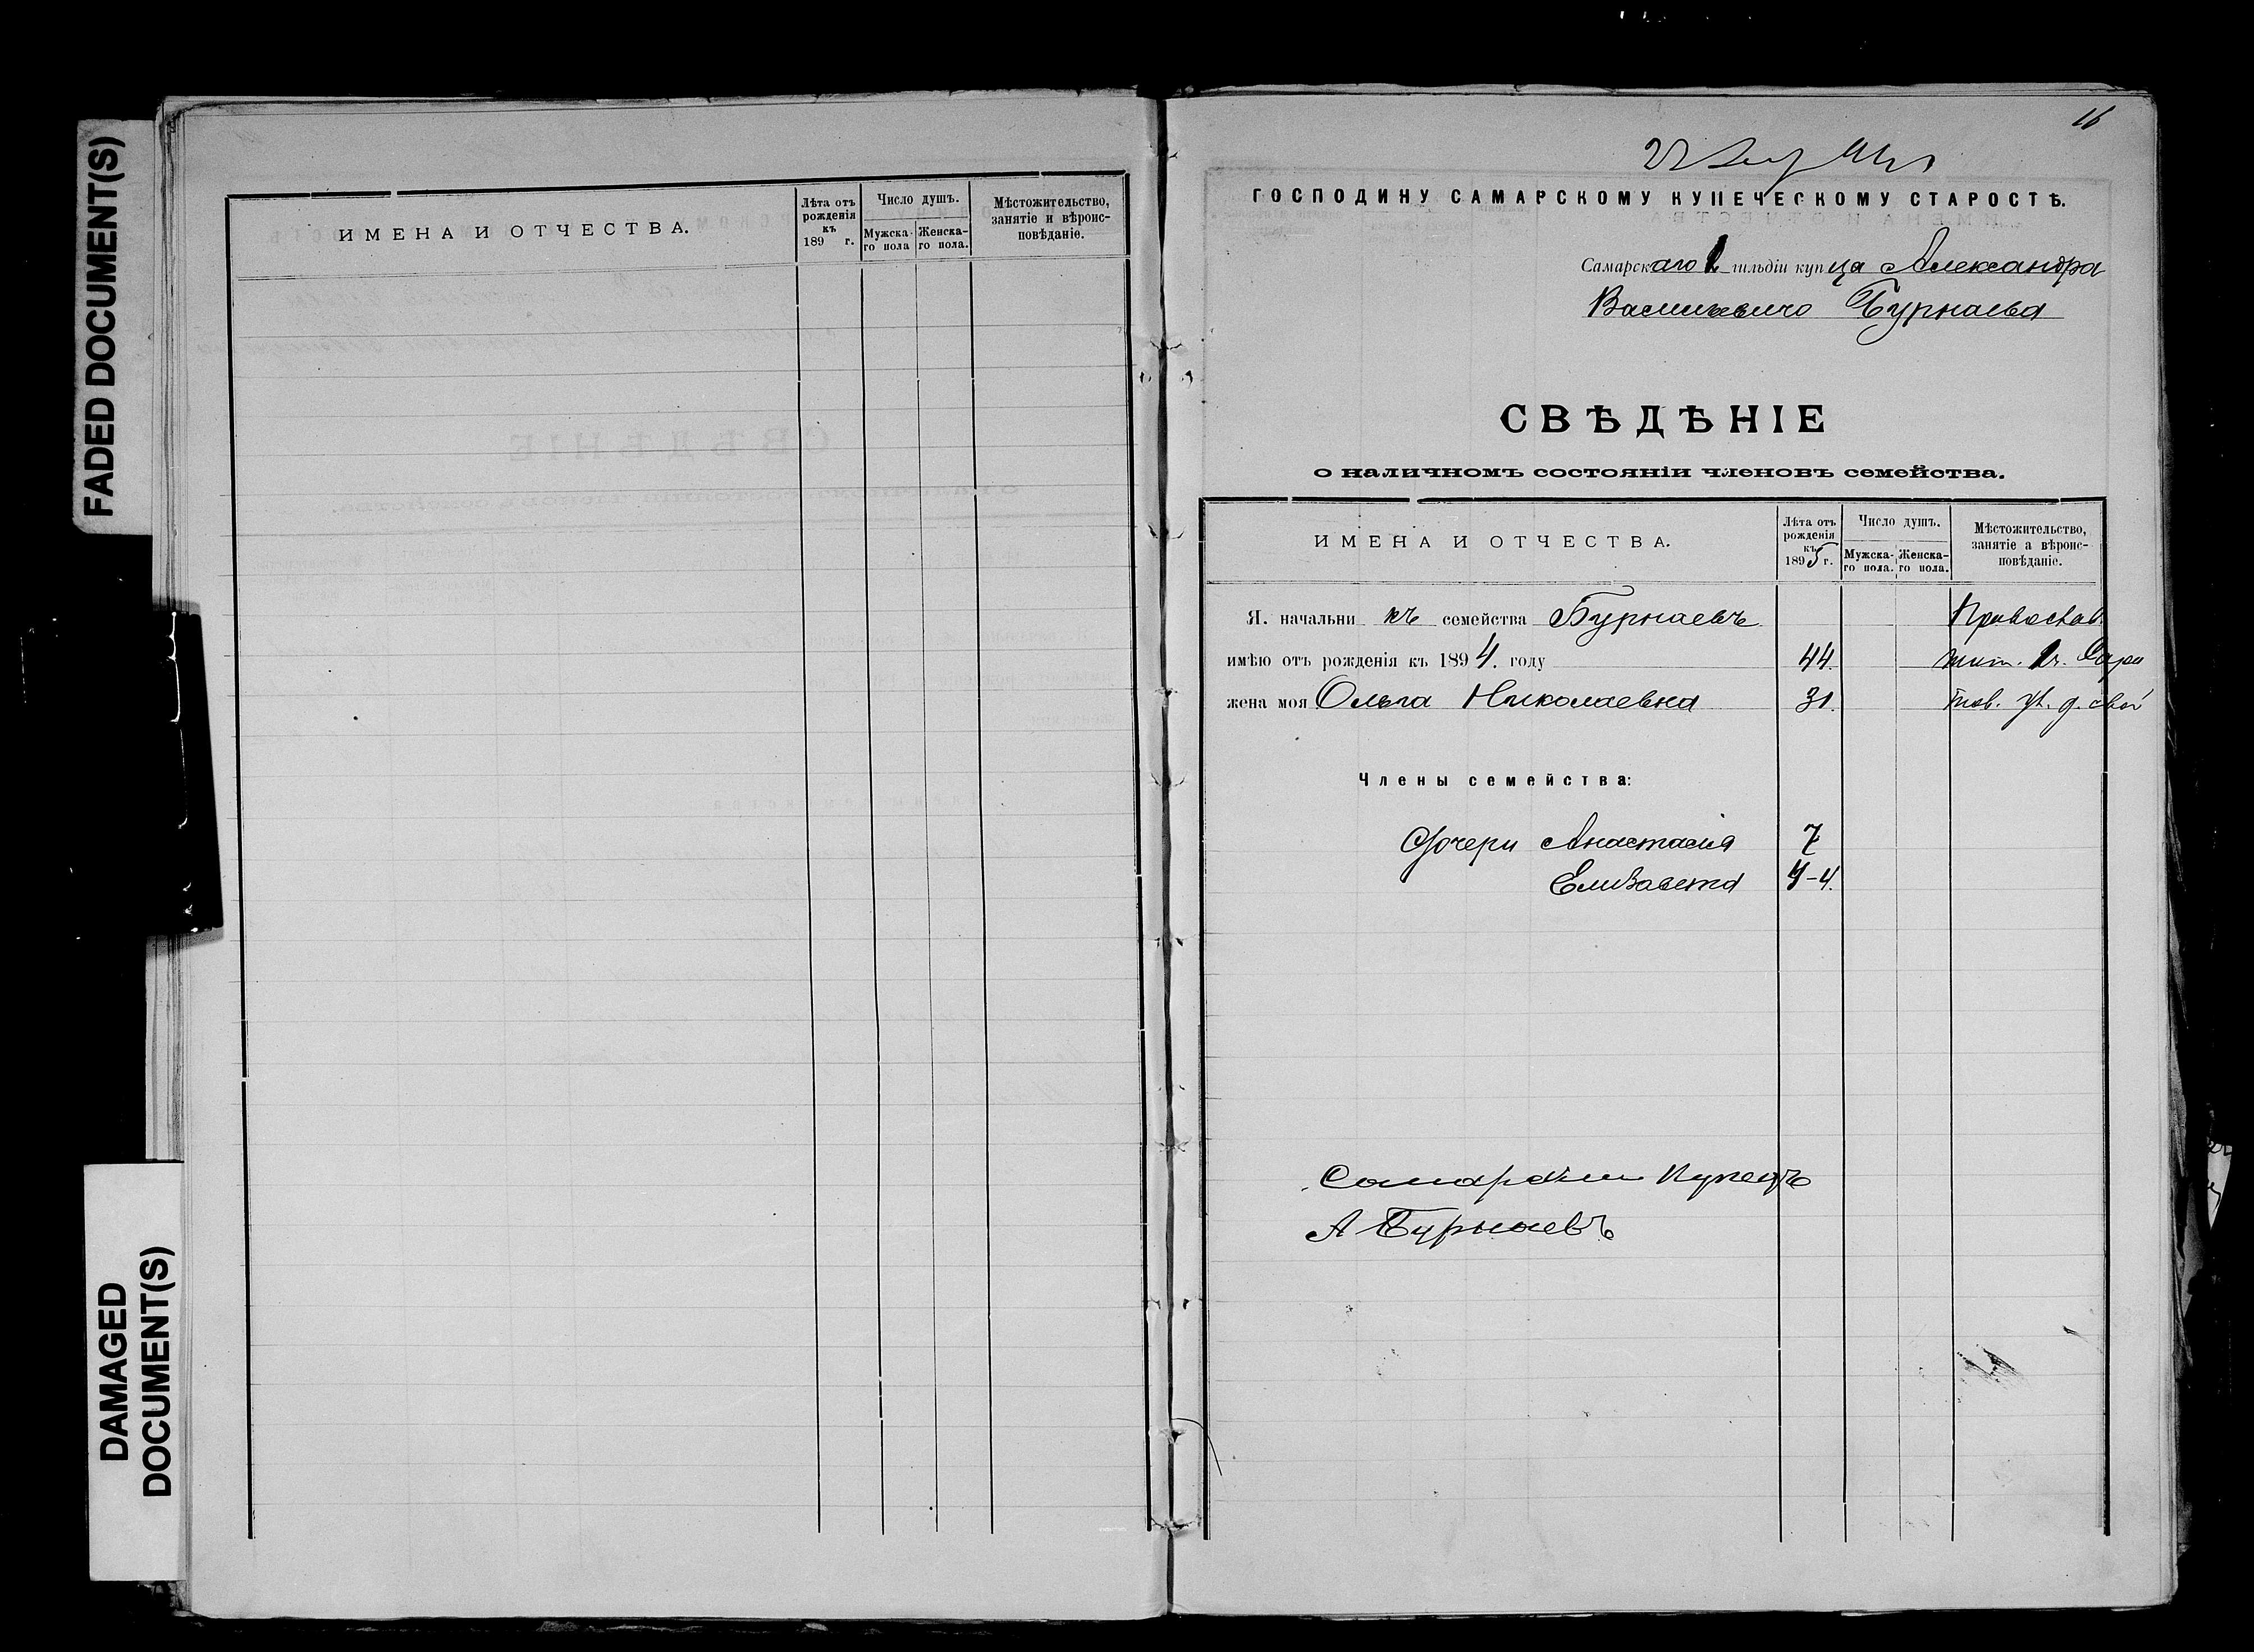 FADED DOCUMENT(S)
DAMAGED
DOCUMENT(S)
ИМЕНА И ОТЧЕСТВА.
Лѣта отъ рожденія къ 189 г.
Число душъ.
Мужска-го пола
Женска-го пола.
Мѣстожительство, занятіе и вѣроис-повѣданіе.
16
ГОСПОДИНУ САМАРСКОМУ КУПЕЧЕСКОМУ СТАРОСТѢ.
Самарскаго гильдіи купца Александра
Васильевича Бурнаева
СВѢДѢНІЕ
о наличномъ состояніи членовъ семейства.
ИМЕНА И ОТЧЕСТВА.
Лѣта отъ рожденія къ 1895 г.
Число душъ.
Мужска-го пола.
Женска-го пола.
Мѣстожительство, занятіе а вѣроис-повѣданіе.
Я. начальникъ семейства Бурнаевъ Православ.
имѣю отъ рожденія къ 1894. году 44. жит.
жена моя Ольга Николаевна 31. д. свой
Члены семейства:
Дочери Анастасія 7
Елизавета 4.
Самарскій Купецъ
А Бурнаевъ